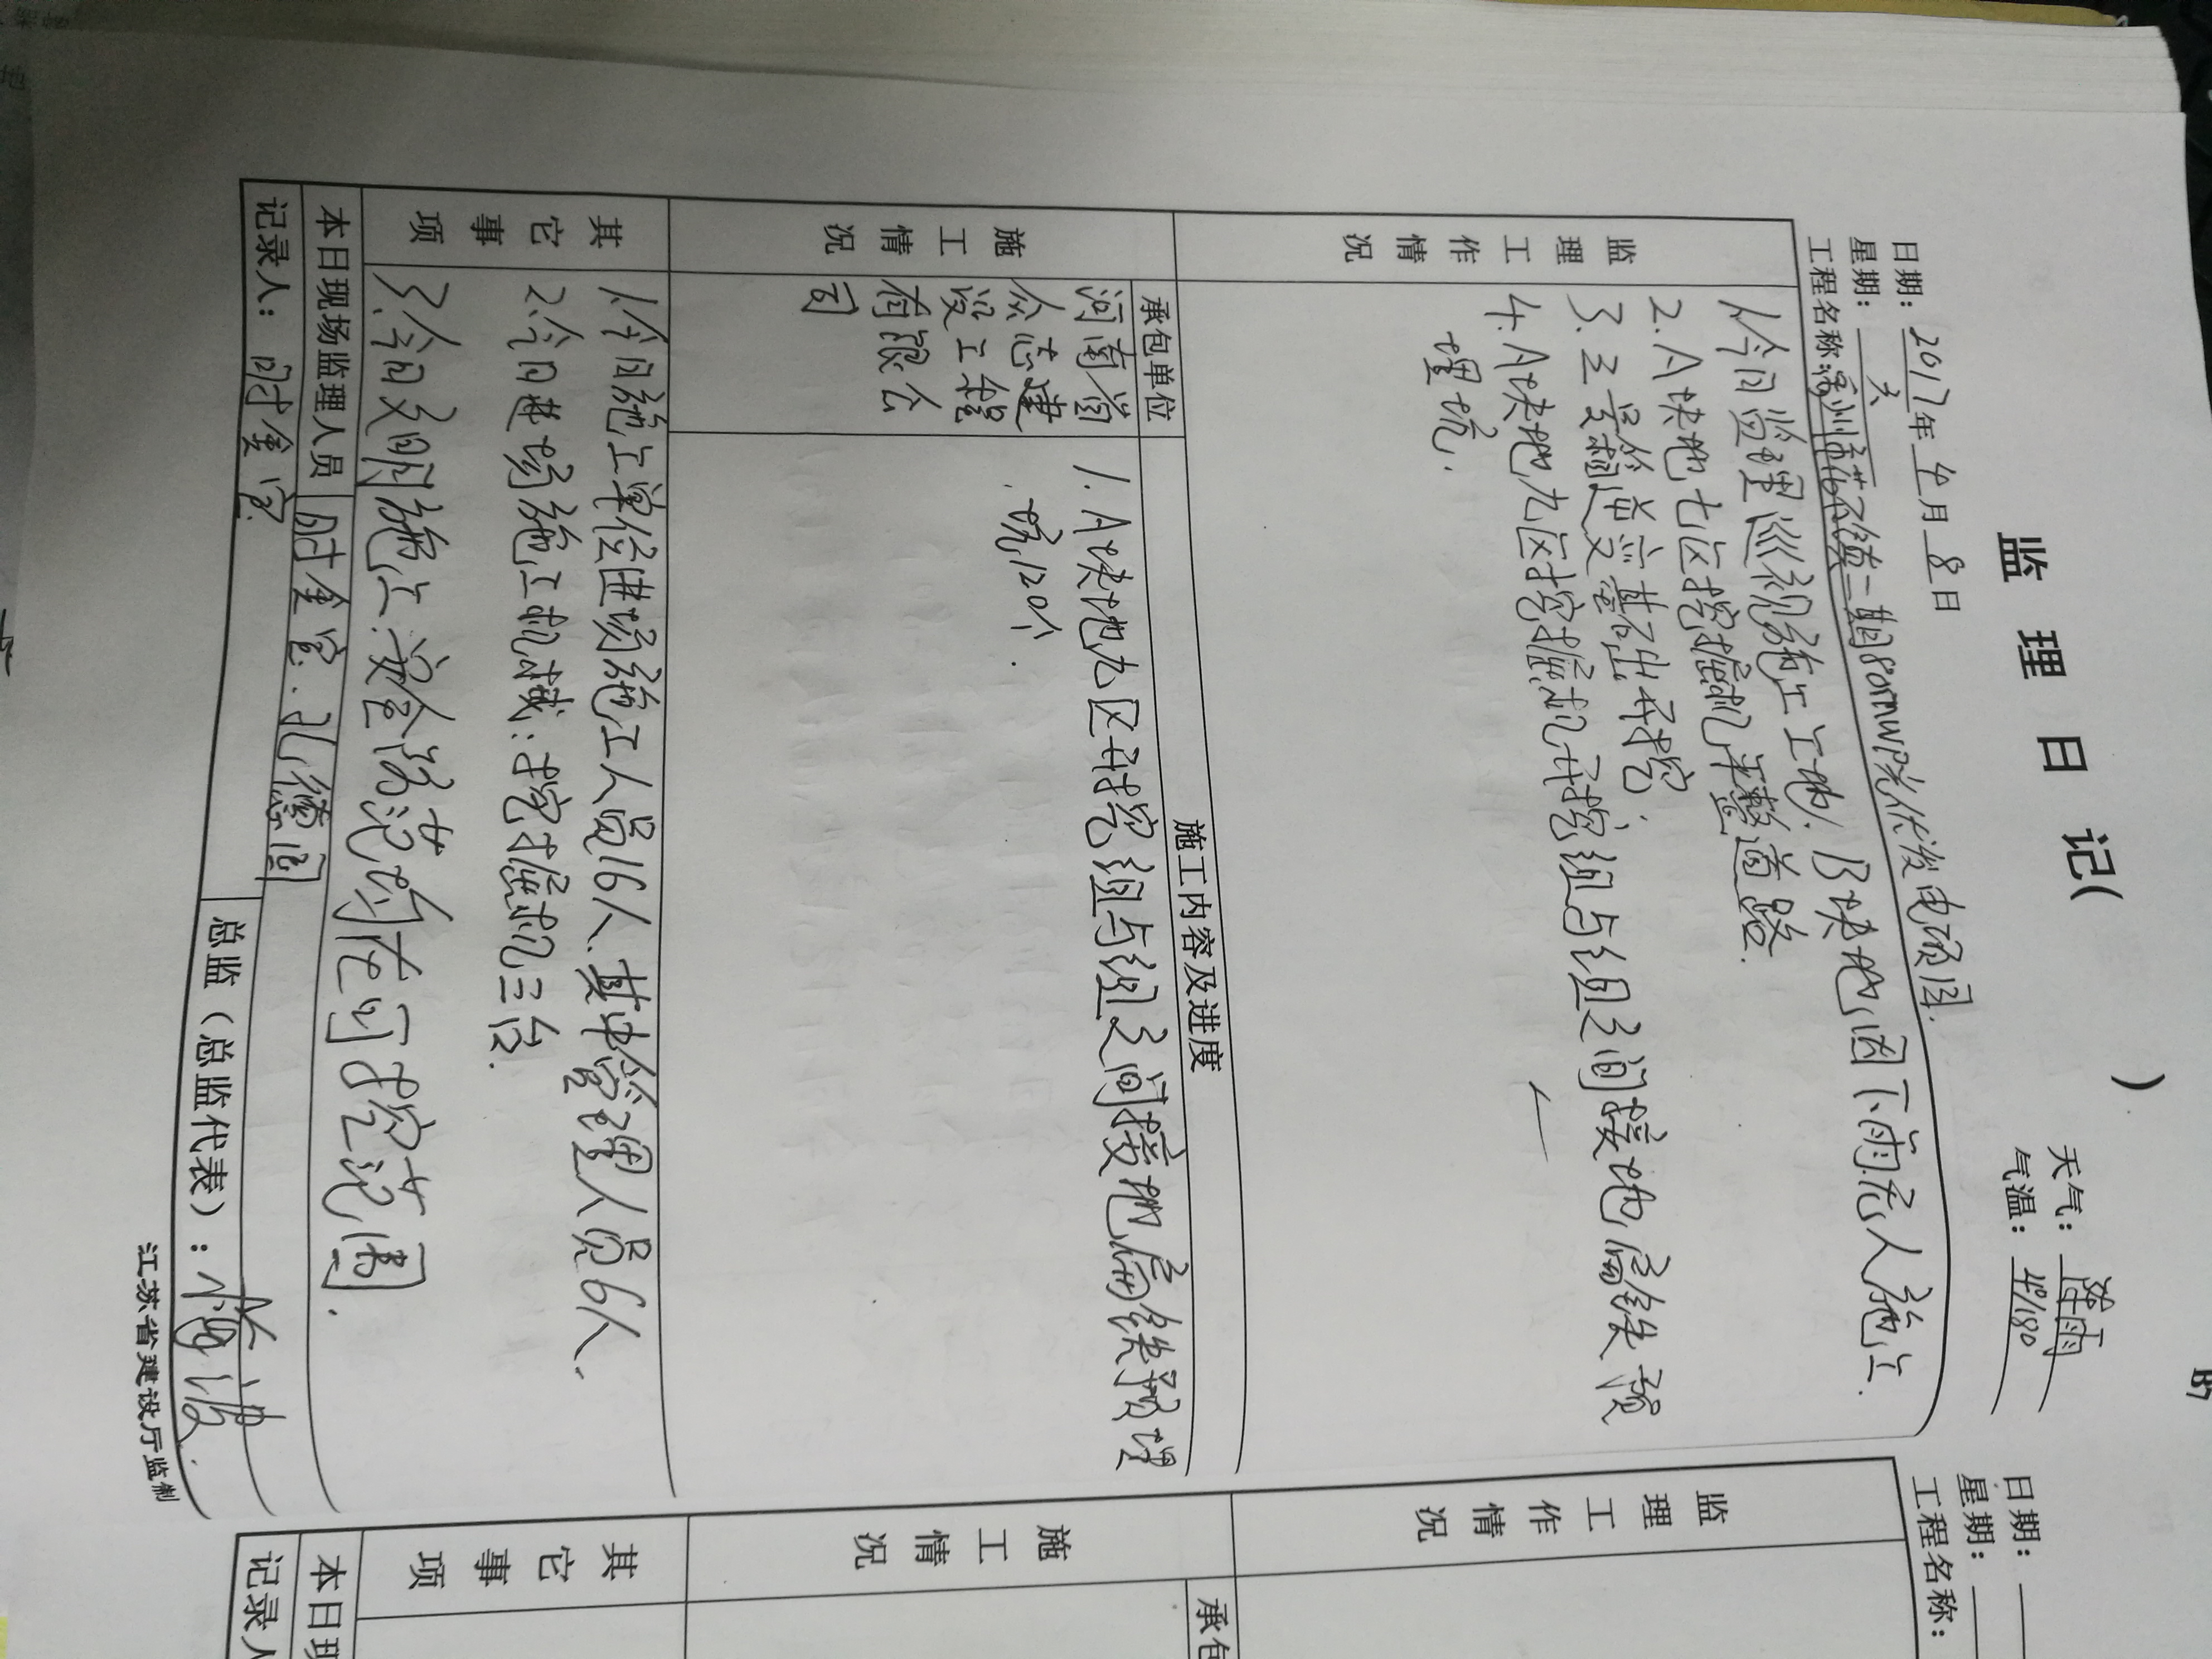 监理日记( )
B7
日期: 2017年4月8日
天气: 阵雨
星期: 六
气温: 4°/18°
工程名称: 二期80mwp光伏发电项目.
监理工作情况
1.今日监理巡视施工工地,B块地因下雨无人施工.
2.A块地七区挖掘机平整道路.
3.三号箱逆变基础开挖.
4.A块地九区挖掘机开挖组与组之间接地扁铁预
埋坑.
施工情况
承包单位
施工内容及进度
河南省
众志建
设工程
有限公
司
1.A块地九区开挖组与组之间接地扁铁预埋
坑120个.
其它事项
1.今日施工单位进场施工人员16人.其中管理人员6人.
2.今日进场施工机械:挖掘机三台.
3.今日文明施工.安全防范均在可控范围.
本日现场监理人员 时金宝.孔德国
记录人: 时金宝.
总监(总监代表):
江苏省建设厅监制
日期:
星期:
工程名称:
监理工作情况
施工情况
承包
其它事项
本日现
记录人